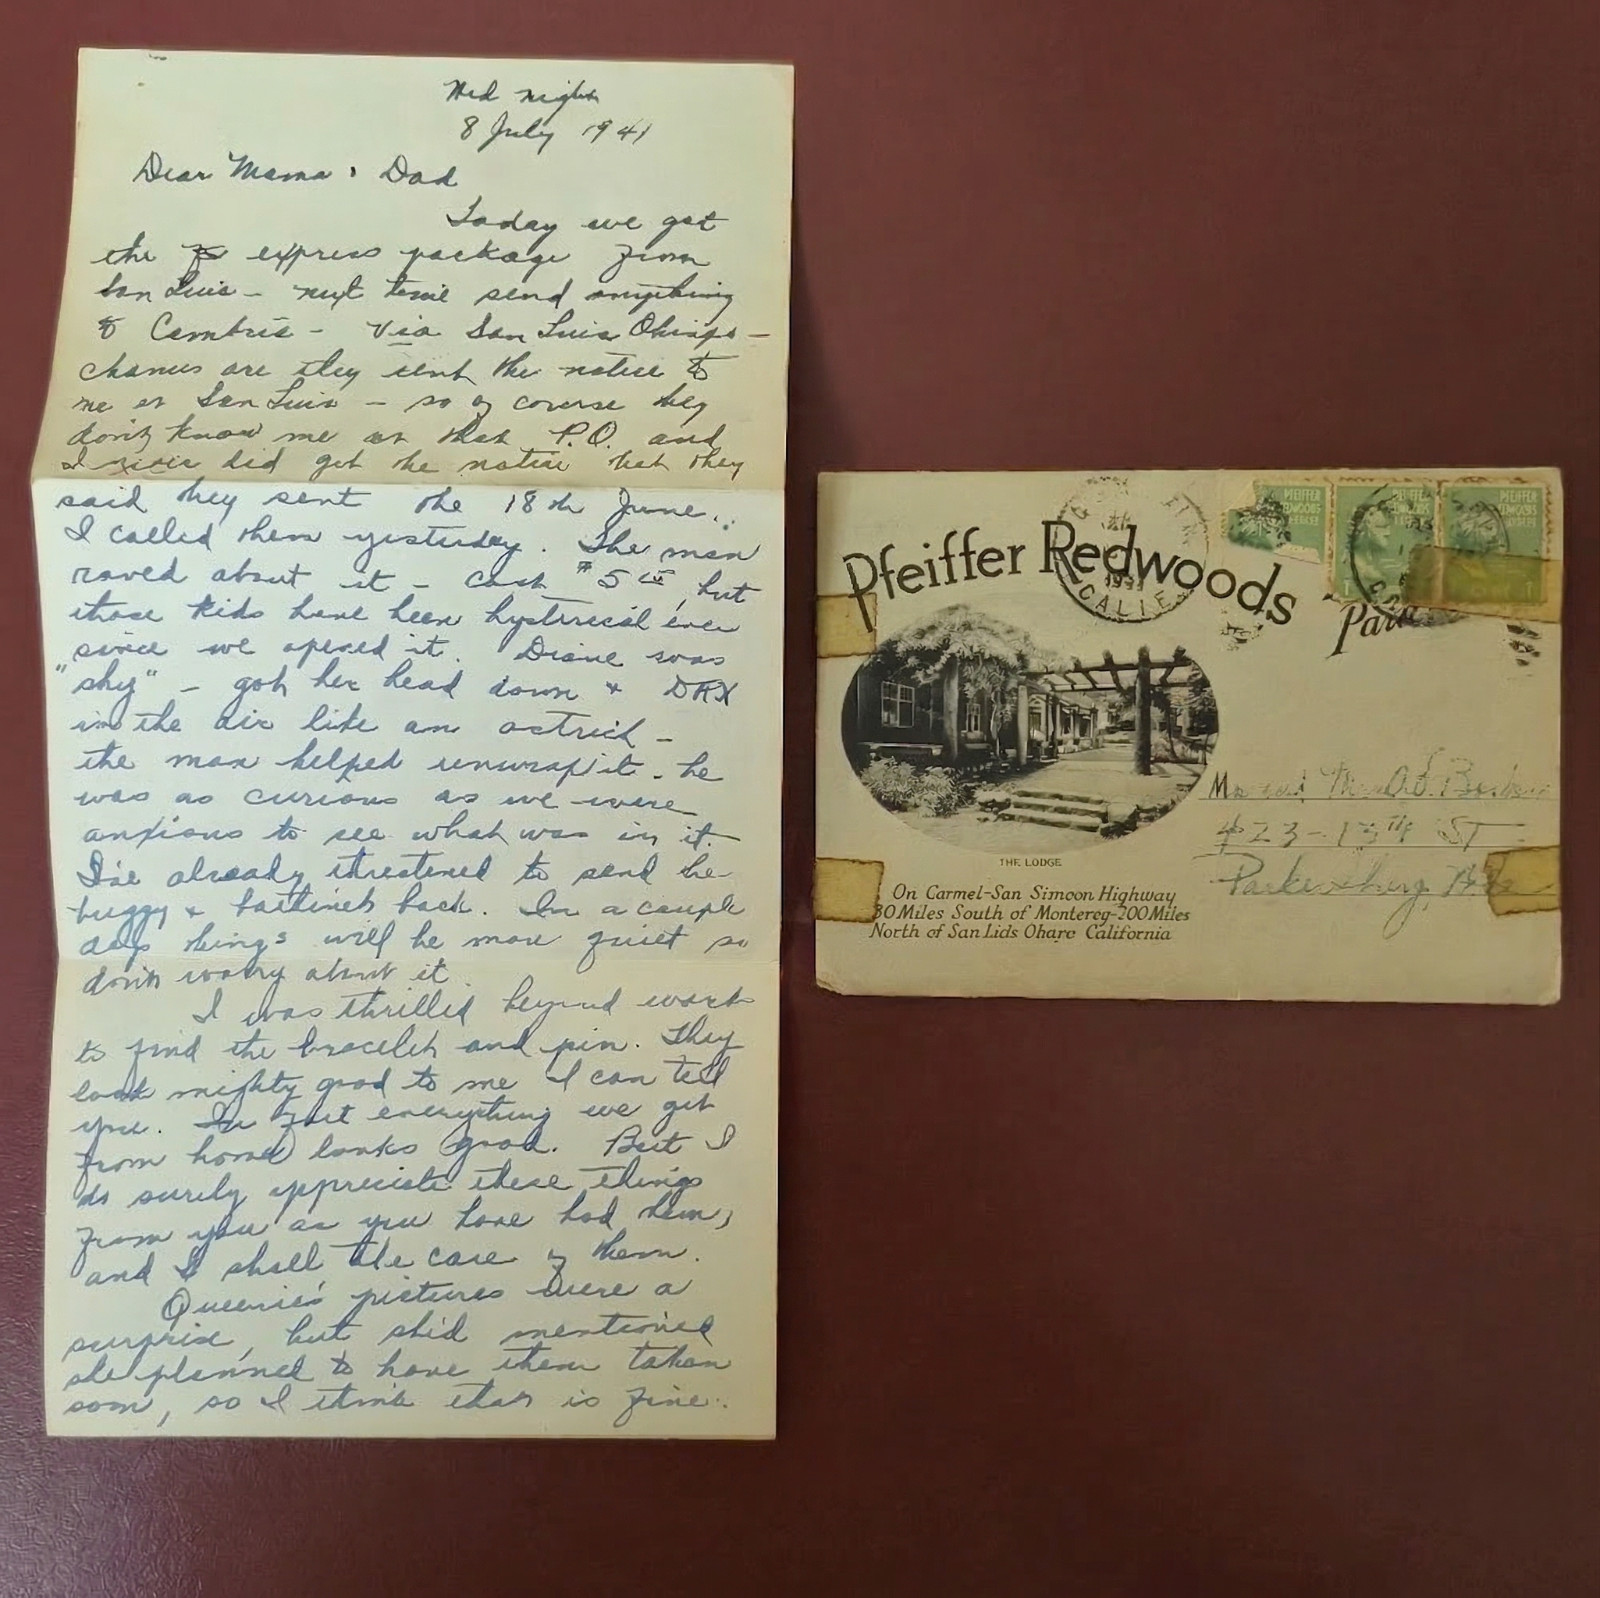 Wed night
8 July 1941
Dear Mama & Dad
Today we got
the express package from
San Luis - next time send anything
to Cambria - via San Luis Obispo -
chances are they sent the notice to
me at San Luis - so of course they
don't know me at that P.O. and
I never did get the notice but they
said they sent the 18th June..
I called them yesterday. The man
raved about it - cost $5 , but
those kids have been hysterical ever
since we opened it. Diane was
"shy" - got her head down &
in the air like an ostrich -
the man helped unwrap it - he
was as curious as we were
anxious to see what was in it.
I've already threatened to send the
buggy & back. In a couple
days things will be more quiet so
don't worry about it.
I was thrilled beyond words
to find the bracelet and pin. They
look mighty good to me I can tell
you. In fact everything we get
from home looks good. But I
do surely appreciate these things
from you as you have had them,
and I shall take care of them.
Queenie's pictures were a
surprise, but she'd mentioned
she planned to have them taken
soon, so I think that is fine.
Pfeiffer Redwoods
Park
CALIF.
PFEIFFER
THE LODGE
On Carmel-San Simoon Highway
30 Miles South of Monterey-200 Miles
North of San Lids Oharc California
Mr and Mrs
423-13TH ST
Parkersburg, W.Va